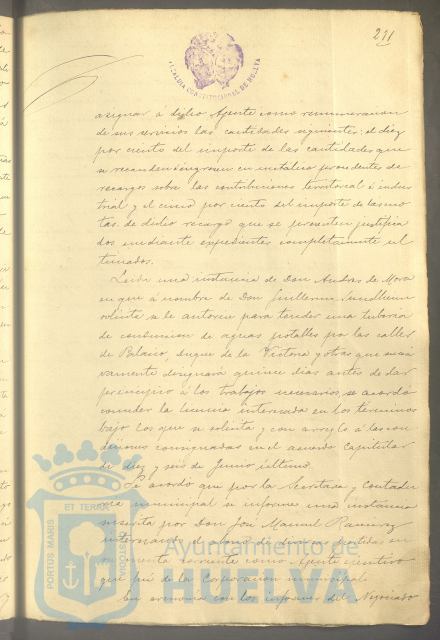 211
ALCALDIA CONSTITUCIONAL DE HUELVA
asignar á dicho Agente como remuneracion
de sus servicios las cantidades siguientes: el diez
por ciento del importe de las cantidades que
se recauden é ingresen en metalico procedentes de
recargos sobre las contribuciones territorial é indus
trial y el cinco por ciento del importe de las cuo
tas de dicho recargo que se presenten justifica
dos mediante expedientes completamente ul
timados.
Leida una instancia de Don Andres de Mora
en que á nombre de Don Guillermo Sundheim
solicita se le autorice para tender una tuberia
de conduccion de aguas potables por las calles
de Palacio, Duque de la Victoria y otras que sucesi
vamente designará quince dias antes de dar
principio á los trabajos necesarios, se acordó
conceder la licencia interesada en los terminos
bajo los que se solicita y con arreglo á las con
diciones consignadas en el acuerdo capitular
de diez y seis de Junio ultimo.
Se acordó que por la Secretaria y Contadu
ria municipal se informe una instancia
suscrita por Don José Manuel Ramirez
interesando el abono de diversas partidas en
su cuenta corriente como Agente ejecutivo
que fué de la Corporacion municipal.
En armonia con los informes del Negociado
PORTUS MARIS ET TERRAE CUSTODIA
Ayuntamiento de
HUELVA